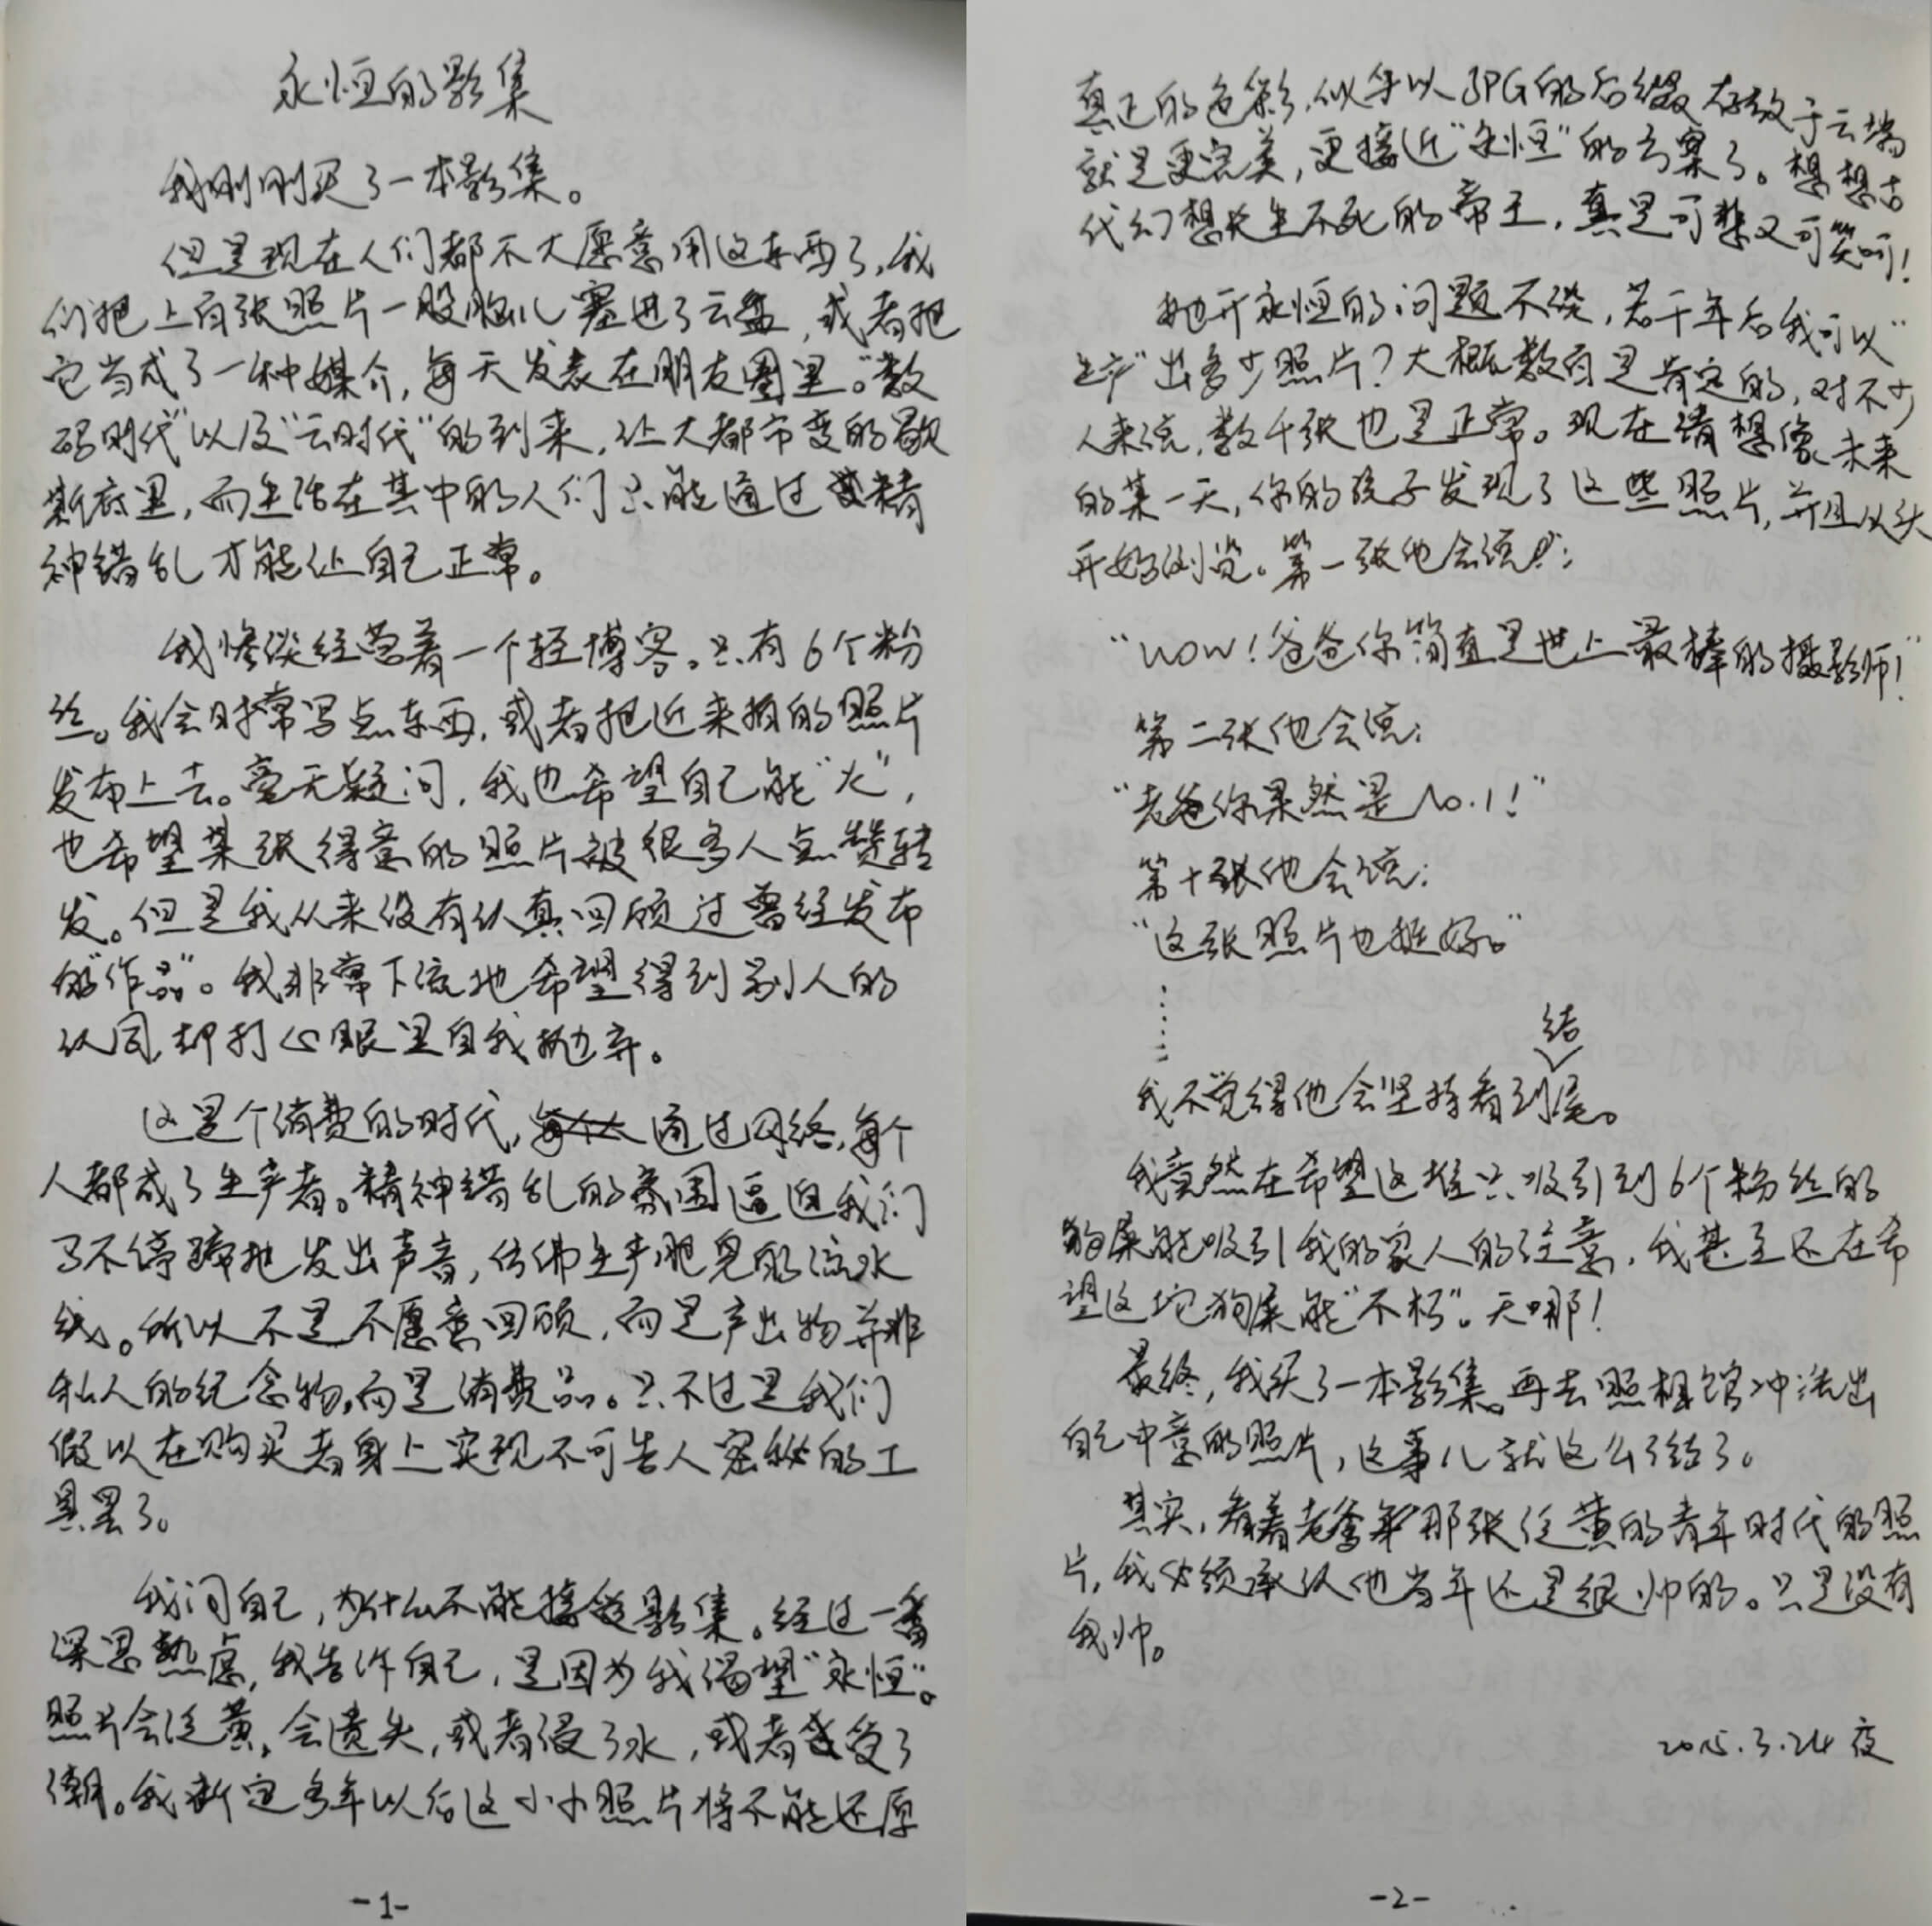 永恒的影集
我刚刚买了一本影集。
但是现在人们都不大愿意用这东西了,我
们把上百张照片一股脑儿塞进了云盘,或者把
它当成了一种媒介,每天发表在朋友圈里。“数
码时代”以及“云时代”的到来,让大都市变的歇
斯底里,而生活在其中的人们只能通过精
神错乱才能让自己正常。
我惨淡经营着一个轻博客。只有6个粉
丝。我会时常写点东西,或者把近来拍的照片
发布上去。毫无疑问,我也希望自己能“火”,
也希望某张得意的照片被很多人点赞转
发。但是我从来没有认真回顾过曾经发布
的“作品”。我非常下流地希望得到别人的
认同,却打心眼里自我抛弃。
这是个消费的时代,通过网络,每个
人都成了生产者。精神错乱的氛围逼迫我们
马不停蹄地发出声音,仿佛生产肥皂的流水
线。所以不是不愿意回顾,而是产出物并非
私人的纪念物,而是消费品。只不过是我们
假以在购买者身上实现不可告人密秘的工
具罢了。
我问自己,为什么不能接受影集。经过一番
深思熟虑,我告诉自己,是因为我渴望“永恒”。
照片会泛黄,会遗失,或者浸了水,或者受了
潮。我断定多年以后这小小照片将不能还原
-1-
真正的色彩,似乎以JPG的后缀存放于云端
就是更完美,更接近“永恒”的方案了。想想古
代幻想长生不死的帝王,真是可悲又可笑呵!
抛开永恒的问题不谈,若干年后我可以“
生产”出多少照片?大概数百是肯定的,对不少
人来说,数千张也是正常。现在请想像未来
的某一天,你的孩子发现了这些照片,并且从头
开始浏览。第一张他会说:
“WOW!爸爸你简直是世上最棒的摄影师!”
第二张他会说:
“老爸你果然是No.1!”
第十张他会说:
“这张照片也挺好。”
……
我不觉得他会坚持看到结尾。
我竟然在希望这堆只吸引到6个粉丝的
狗屎能吸引我的家人的注意,我甚至还在希
望这坨狗屎能“不朽”。天哪!
最终,我买了一本影集。再去照相馆冲洗出
自己中意的照片,这事儿就这么了结了。
其实,看着老爹那张泛黄的青年时代的照
片,我必须承认他当年还是很帅的。只是没有
我帅。
2015.3.24 夜
-2-